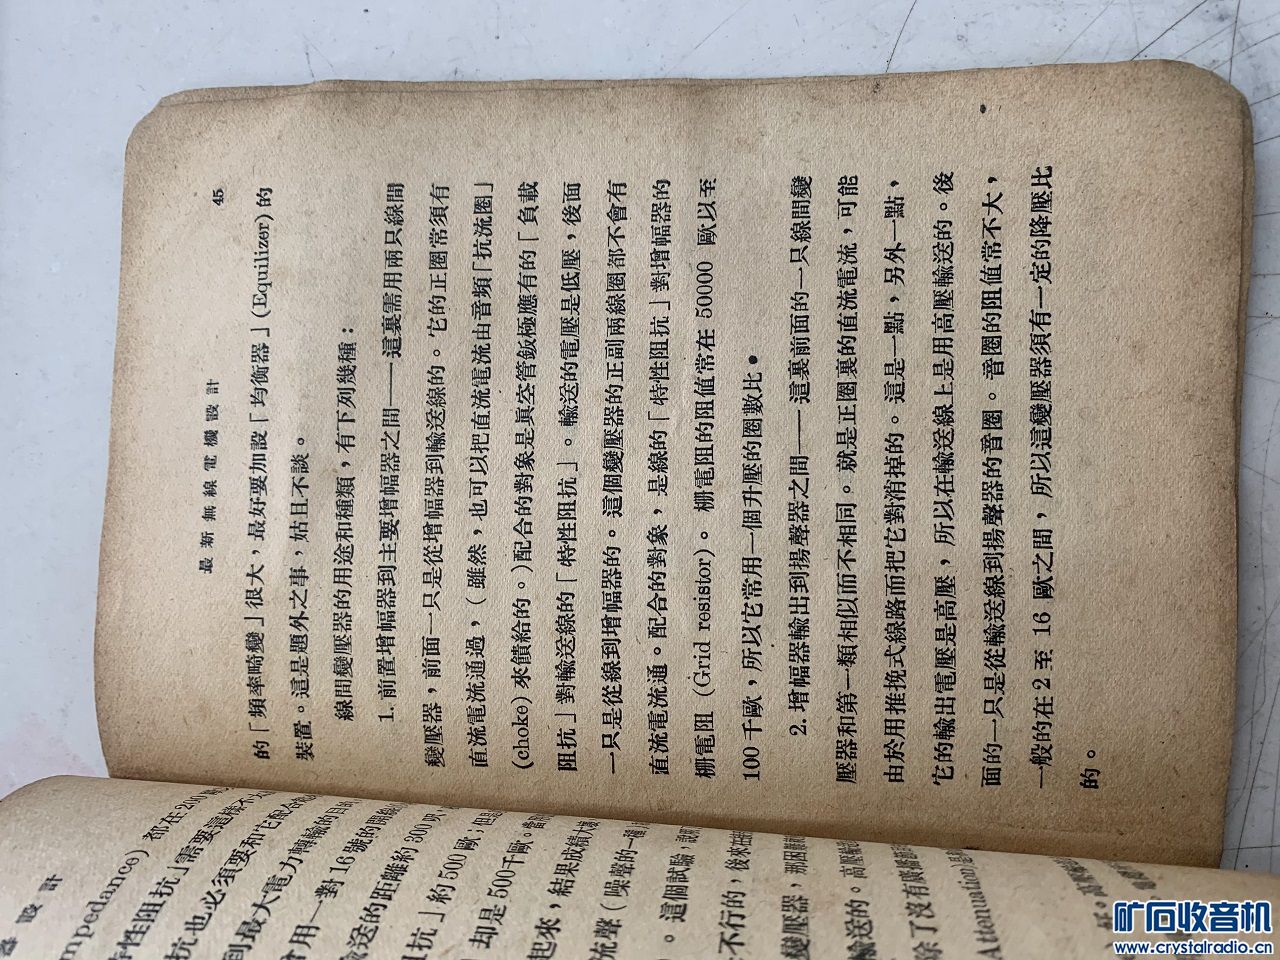 最新無線電機設計 45
的「頻率畸變」很大，最好要加設「均衡器」(Equilizer)的
裝置。這是題外之事，姑且不談。
線間變壓器的用途和種類，有下列幾種：
1. 前置增幅器到主要增幅器之間——這裏需用兩只線間
變壓器，前面一只是從增幅器到輸送線的。它的正圈常須有
直流電流通過，（雖然，也可以把直流電流由音頻「抗流圈」
(choke)來饋給的。)配合的對象是眞空管鈑極應有的「負載
阻抗」對輸送線的「特性阻抗」。輸送的電壓是低壓，後面
一只是從線到增幅器的。這個變壓器的正副兩線圈都不會有
直流電流通。配合的對象，是線的「特性阻抗」對增幅器的
栅電阻 (Grid resistor)。栅電阻的阻值常在 50000 歐以至
100千歐，所以它常用一個升壓的圈數比。
2. 增幅器輸出到揚聲器之間——這裏前面的一只線間變
壓器和第一類相似而不相同。就是正圈裏的直流電流，可能
由於用推挽式線路而把它對消掉的。這是一點，另外一點，
它的輸出電壓是高壓，所以在輸送線上是用高壓輸送的。後
面的一只是從輸送線到揚聲器的音圈。音圈的阻值常不大，
一般的在 2 至 16 歐之間，所以這變壓器須有一定的降壓比
的。
設計
mpedance) 都在200
性阻抗」需要這樣不
抗也必須要和它配合
到最大電力轉輸的目的
常用一對16號的開
送的距離約300呎，
抗」約500歐；但是
却是500千歐。當
起來，結果成績大
流聲（噪聲的一種
。這個試驗，說明
不行的，後來在
變壓器，那因爲
輸送的。高壓輸
除了沒有廣
Attenuation)是
矿石收音机
www.crystalradio.cn